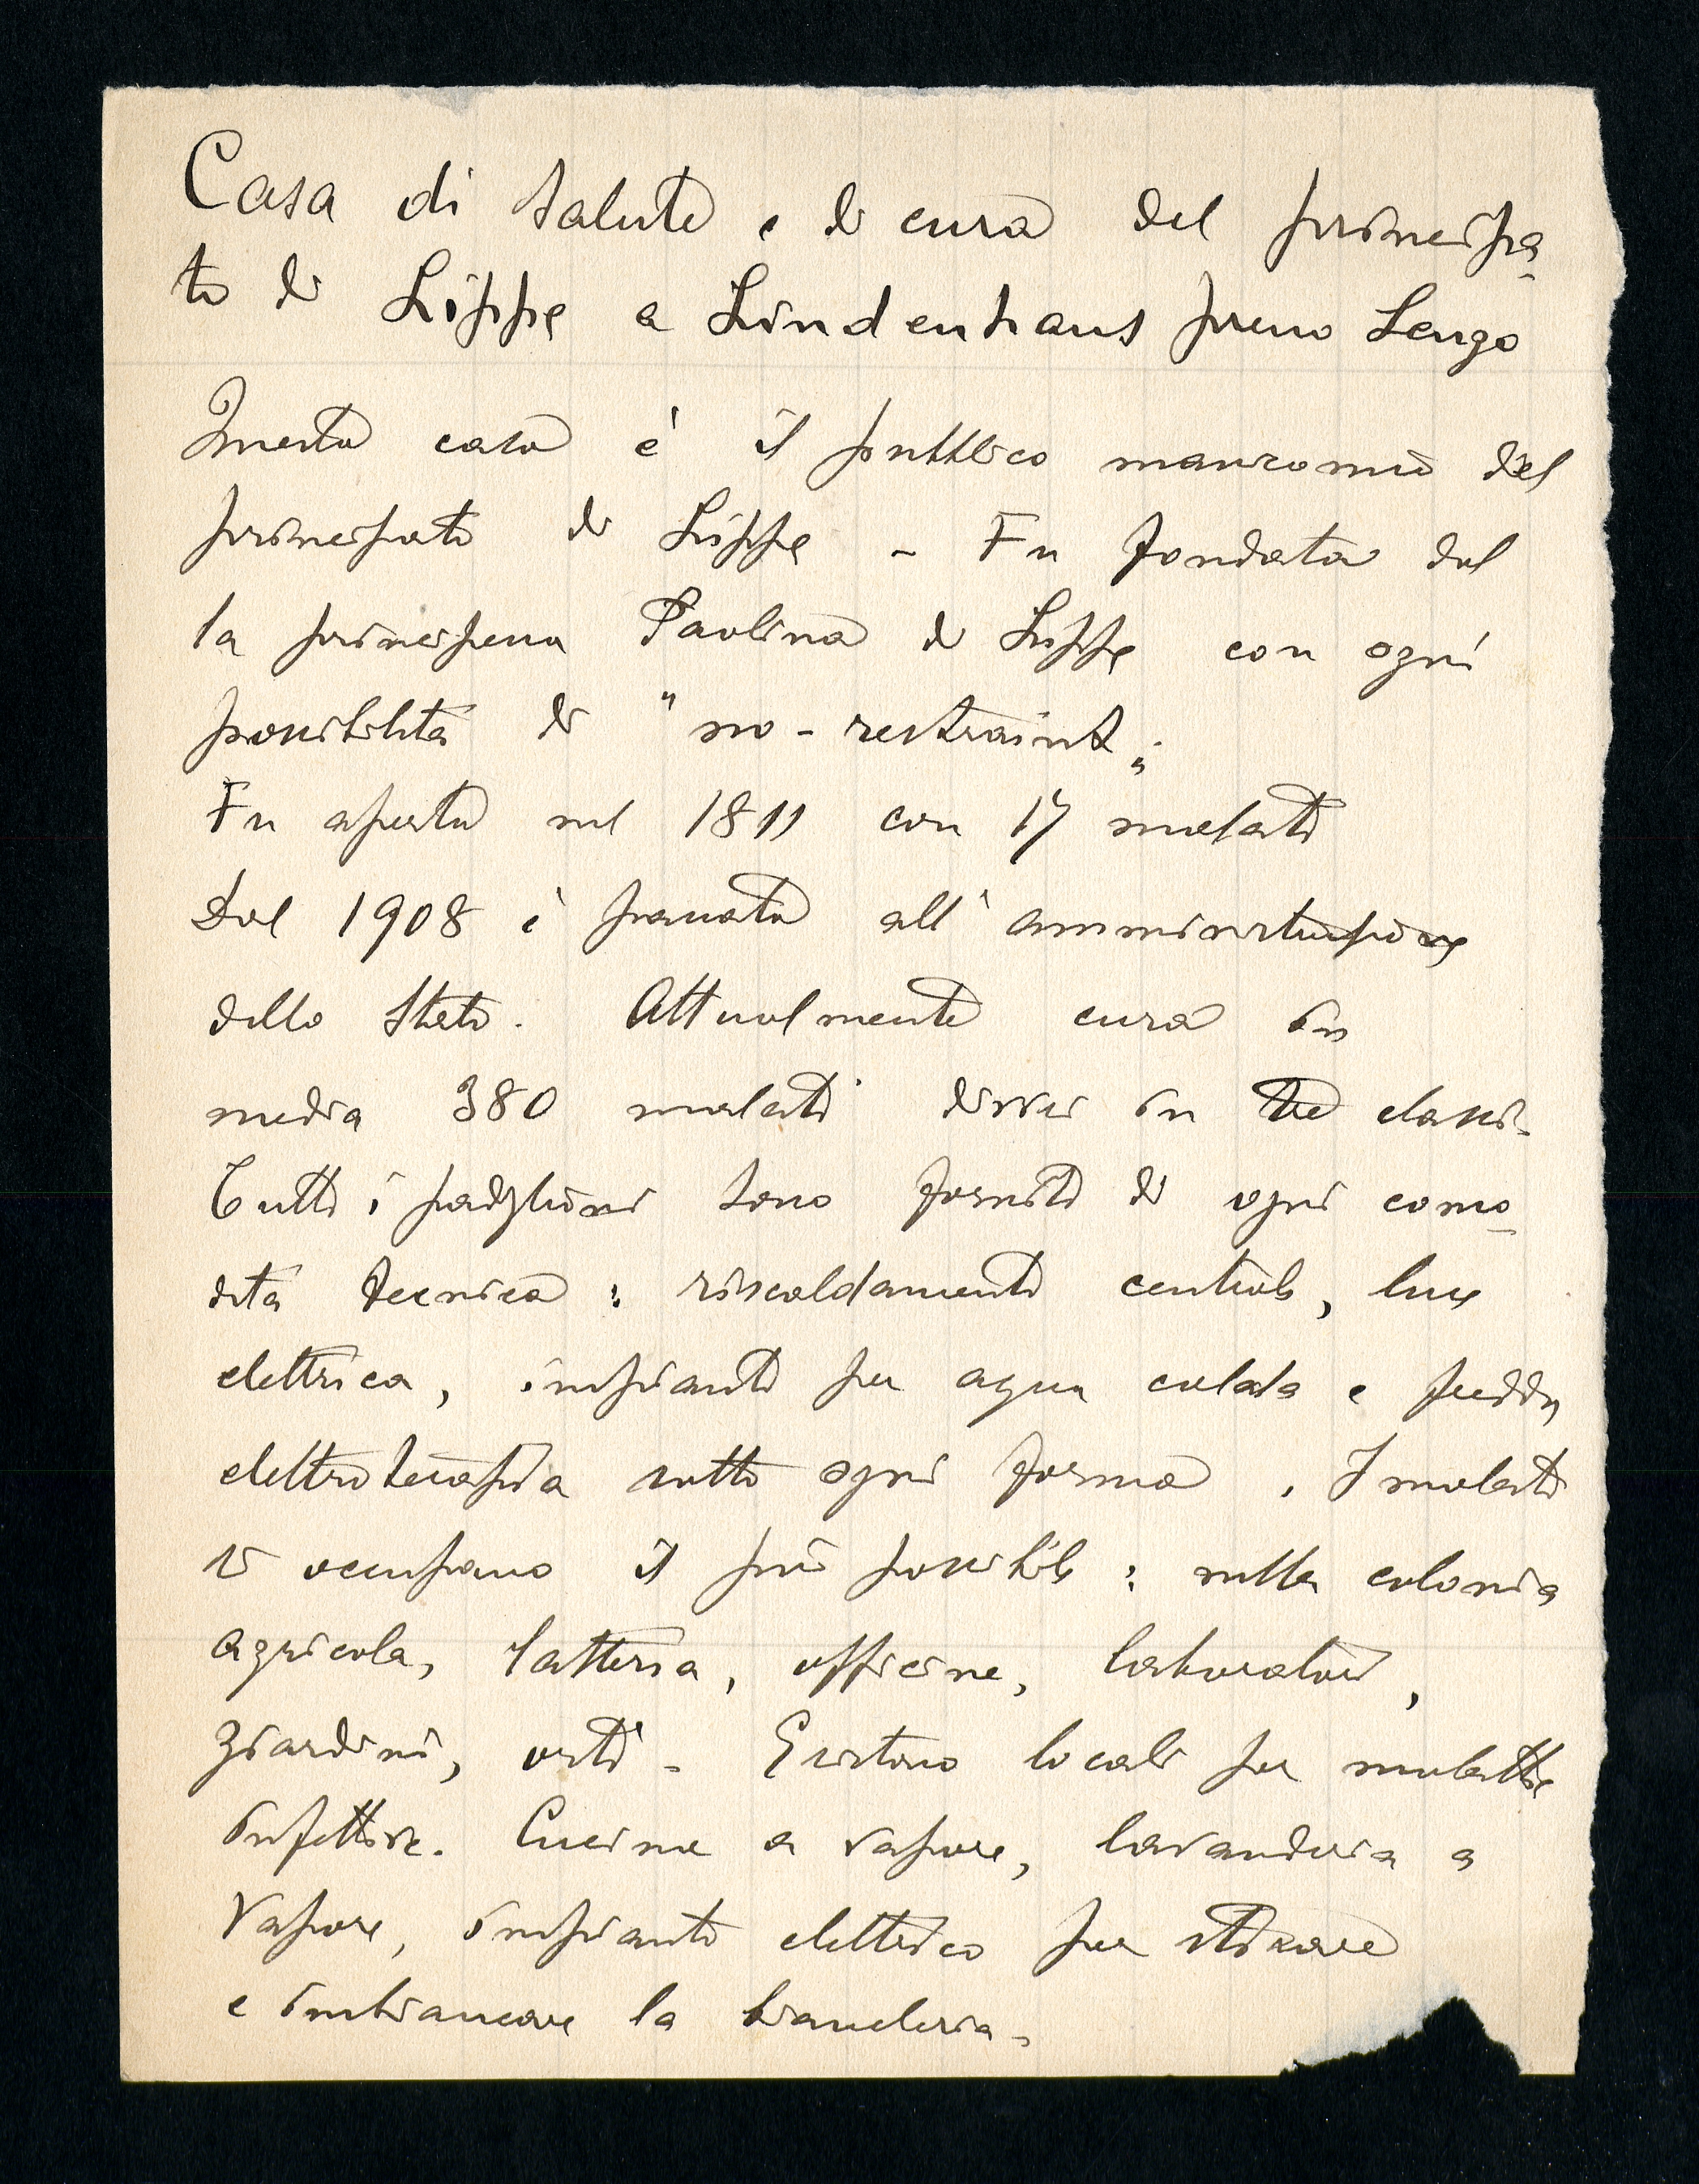 Casa di salute e di cura del principa-
to di Lippe a Lindenhaus presso Lengo
Questa casa è il pubblico manicomio del
principato di Lippe - Fu fondata dal
la principessa Paolina di Lippe con ogni
possibilità di "no-restraint„.
Fu aperta nel 1811 con 17 malati
Dal 1908 è passata all'amministrazione
dello Stato. Attualmente cura in
media 380 malati divisi in tre classi.
Tutti i padiglioni sono forniti di ogni como-
dità tecnica: riscaldamento centrale, luce
elettrica, impianti per acqua calda e fredda,
elettroterapia sotto ogni forma. I malati
si occupano il più possibile: nella colonia
agricola, latteria, officine, laboratori,
giardini, orti - Esistono locali per malattie
infettive. Cucina a vapore, lavanderia a
vapore, impianto elettrico per stirare
e imbiancare la biancheria.